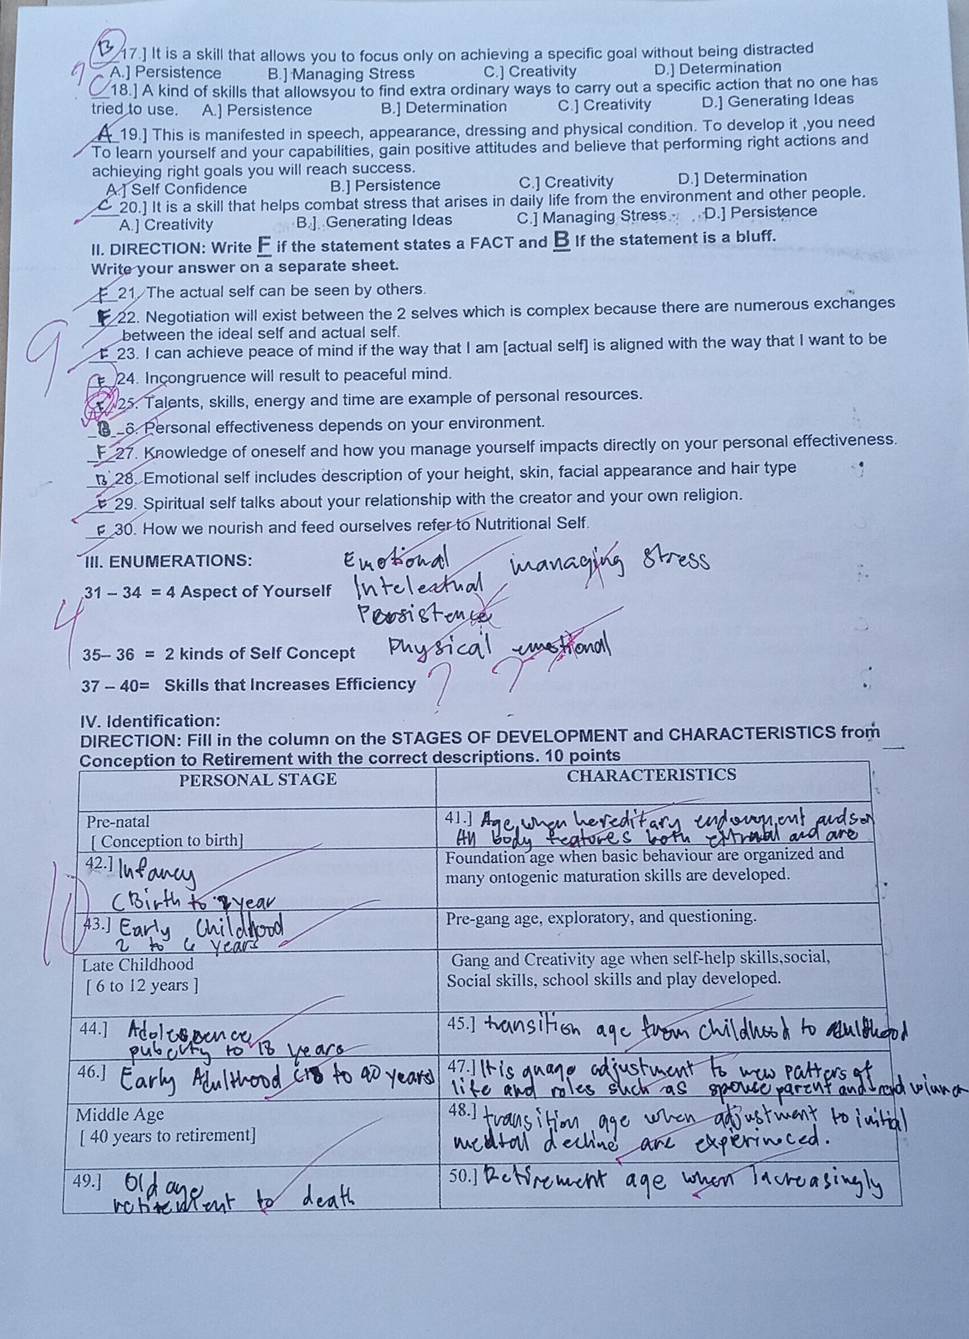 B 17.] It is a skill that allows you to focus only on achieving a specific goal without being distracted
9 A.] Persistence B.] Managing Stress C.] Creativity D.] Determination
C 18.] A kind of skills that allowsyou to find extra ordinary ways to carry out a specific action that no one has
tried to use. A.] Persistence B.] Determination C.] Creativity D.] Generating Ideas
A 19.] This is manifested in speech, appearance, dressing and physical condition. To develop it ,you need
To learn yourself and your capabilities, gain positive attitudes and believe that performing right actions and
achieving right goals you will reach success.
A.] Self Confidence B.] Persistence C.] Creativity D.] Determination
C 20.] It is a skill that helps combat stress that arises in daily life from the environment and other people.
A.] Creativity B.] Generating Ideas C.] Managing Stress D.] Persistence
II. DIRECTION: Write F if the statement states a FACT and B If the statement is a bluff.
Write your answer on a separate sheet.
F 21. The actual self can be seen by others.
F 22. Negotiation will exist between the 2 selves which is complex because there are numerous exchanges
between the ideal self and actual self.
9 F 23. I can achieve peace of mind if the way that I am [actual self] is aligned with the way that I want to be
F 24. Incongruence will result to peaceful mind.
F 25. Talents, skills, energy and time are example of personal resources.
B 6. Personal effectiveness depends on your environment.
F 27. Knowledge of oneself and how you manage yourself impacts directly on your personal effectiveness.
B 28. Emotional self includes description of your height, skin, facial appearance and hair type
F 29. Spiritual self talks about your relationship with the creator and your own religion.
F 30. How we nourish and feed ourselves refer to Nutritional Self.
III. ENUMERATIONS: Emotional managing stress
31 – 34 = 4 Aspect of Yourself Intelectual
4 Persistence
35– 36 = 2 kinds of Self Concept Physical emotional
37 – 40= Skills that Increases Efficiency ? ?
IV. Identification:
DIRECTION: Fill in the column on the STAGES OF DEVELOPMENT and CHARACTERISTICS from
Conception to Retirement with the correct descriptions. 10 points
PERSONAL STAGE CHARACTERISTICS
Pre-natal 41.] Age when hereditary endowment and
[ Conception to birth] An body features both and are
42.] Infancy Foundation age when basic behaviour are organized and
many ontogenic maturation skills are developed.
(Birth to 2 year
10 43.] Early Childhood Pre-gang age, exploratory, and questioning.
2 to 6 years
Late Childhood Gang and Creativity age when self-help skills,social,
[ 6 to 12 years ] Social skills, school skills and play developed.
44.] Adolescence 45.] transition age from childhood to adulthood
puberty to 18 years
46.] Early Adulthood (18 to 40 years) 47.] It is age adjustment to new patters of
life and roles such as spouse parent and
Middle Age 48.] transition age when adjustment to initial
[ 40 years to retirement] mental decline are experinced.
49.] Old age 50.] Retirement age when Increasingly
retirement to death